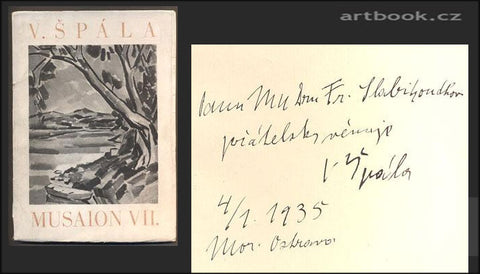 artbook.cz
V. ŠPÁLA
MUSAION VII.
panu MUDru Fr. Slabihoudkov
přátelsky věnuje
V Špála
4/1. 1935
Mor. Ostrava